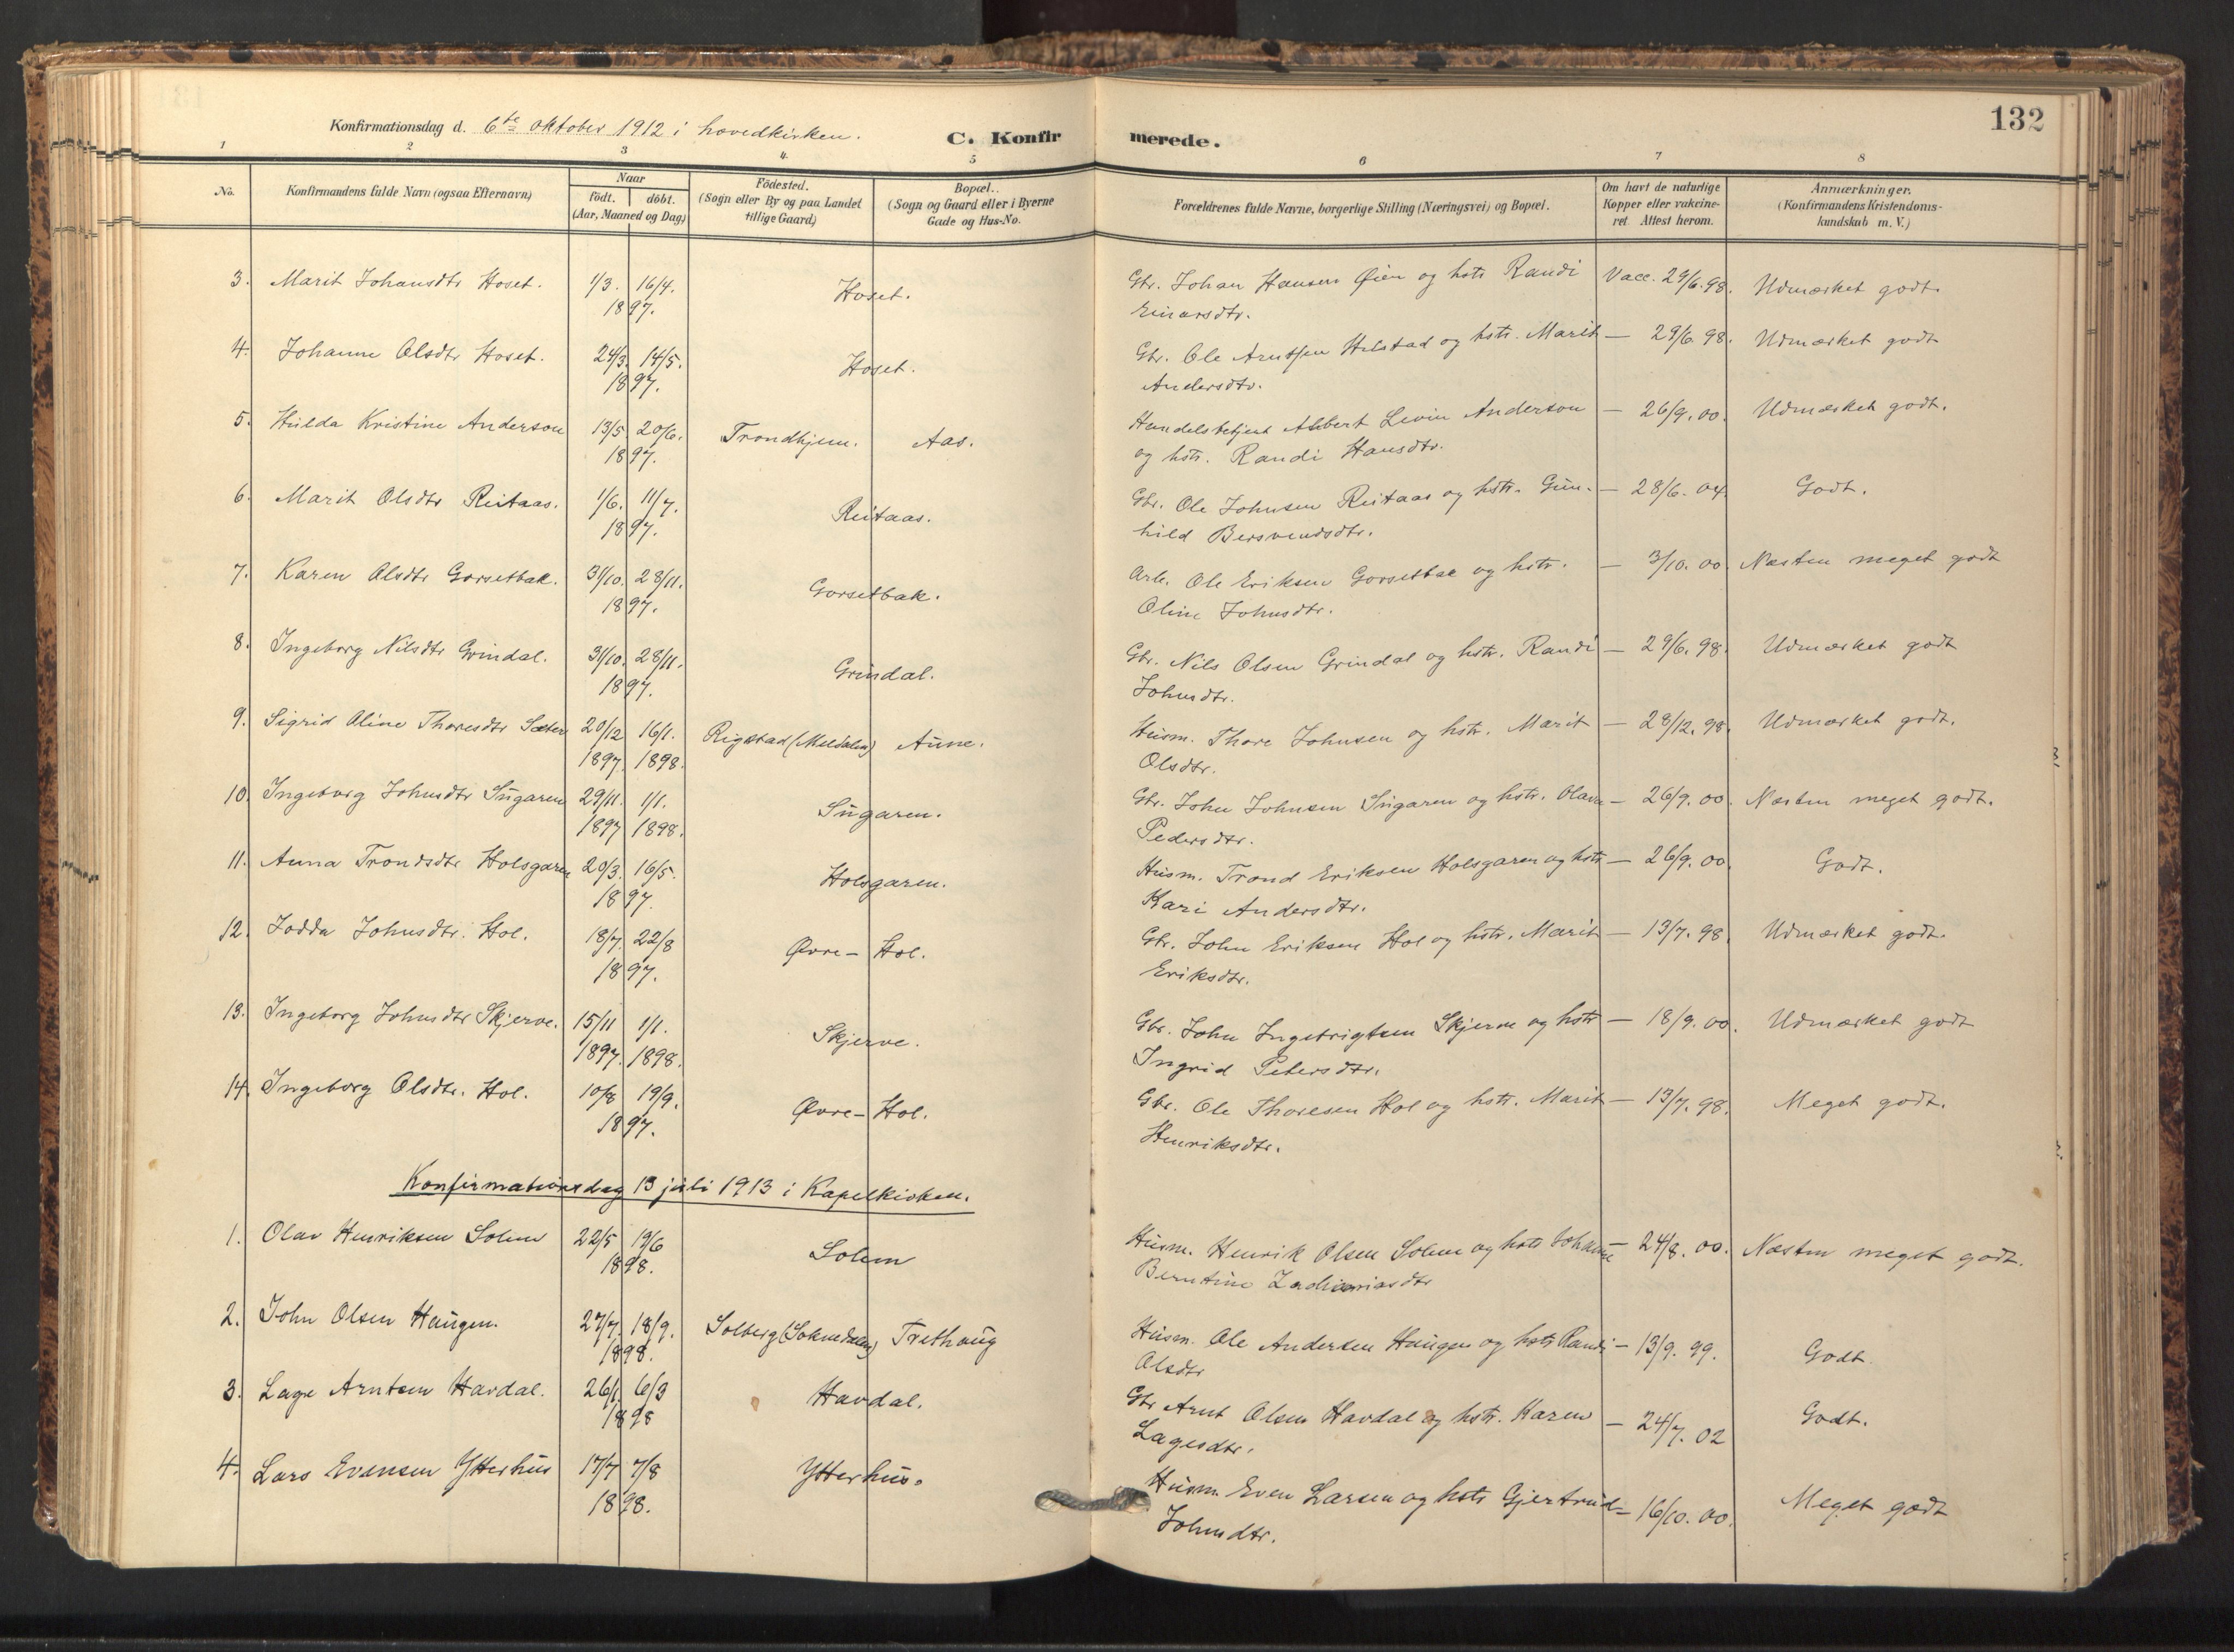 132
Konfirmationsdag d. 6te oktober 1912 i hovedkirken.
C. Konfirmerede.
1 2 3 4. 5 6 7 8
No.
Konfirmandens fulde Navn (ogsaa Efternavn)
Naar
födt. döbt.
(Aar, Maaned og Dag)
Födested.
(Sogn eller By og paa Landet
tillige Gaard)
Bopæl.
(Sogn og Gaard eller i Byerne
Gade og Hus-No.
Forældrenes fulde Navne, borgerlige Stilling (Næringsvei) og Bopæl.
Om havt de naturlige
Kopper eller vakcine-
ret. Attest herom.
Anmærkninger.
(Konfirmandens Kristendoms-
kundskab m. V.)
3. Marit Johansdtr Hoset. 1/3. 16/4. Hoset. Gbr. Johan Hansen Øien og hstr Randi Vacc. 29/6.98. Udmærket godt.
1897. Einarsdtr.
4. Johanne Olsdtr Hoset. 24/3. 14/5. Hoset. Gbr. Ole Arntsen Hilstad og hstr. Marit — 29/6.98. Udmærket godt
1897. Andersdtr.
5. Hulda Kristine Anderson 13/5. 20/6. Trondhjem. Aas. Handelsbetjent Albert Levin Anderson — 26/9.00. Udmærket godt.
1897. og hstr. Randi Hansdtr.
6. Marit Olsdtr Reitaas. 1/6. 11/7. Reitaas. Gbr. Ole Johnsen Reitaas og hstr. Gun- — 28/6.04. Godt.
1897. hild Bersvendsdtr.
7. Karen Olsdtr Gorsetbak. 31/10. 28/11. Gorsetbak. Arb. Ole Eriksen Gorsetbak og hstr. — 3/10.00. Næsten meget godt
1897. Oline Johnsdtr.
8. Ingeborg Nilsdtr Grindal. 31/10. 28/11. Grindal. Gbr. Nils Olsen Grindal og hstr. Randi — 29/6.98. Udmærket godt
1897. Johnsdtr.
9. Sigrid Oline Thoresdtr Sæter 20/12 16/1. Rigstad (Meldalen) Aune. Husm. Thore Johnsen og hstr. Marit — 28/12.98. Udmærket godt.
1897. 1898. Olsdtr.
10. Ingeborg Johnsdtr Sugaren 29/11. 1/1. Sugaren. Gbr. John Johnsen Sugaren og hstr. Olava — 26/9.00. Næsten meget godt.
1897 1898. Pedersdtr.
11. Anna Trondsdtr Holsgaren 20/3. 16/5. Holsgaren. Husm. Trond Eriksen Holsgaren og hstr — 26/9.00. Godt.
1897. Kari Andersdtr.
12. Jodda Johnsdtr. Hol. 18/7. 22/8 Øvre-Hol. Gbr. John Eriksen Hol og hstr. Marit — 13/7.98. Udmærket godt.
1897. Eriksdtr.
13. Ingeborg Johnsdtr Skjerve. 15/11 1/1. Skjerve. Gbr. John Ingebrigtsen Skjerve og hstr — 18/9.00. Udmærket godt
1897. 1898. Ingrid Petersdtr.
14. Ingeborg Olsdtr. Hol. 10/8 19/9. Øvre-Hol. Gbr. Ole Thoresen Hol og hstr. Marit — 13/7.98. Meget godt.
1897. Henriksdtr.
Konfirmationsdag 13 juli 1913 i Kapelkirken.
1. Olav Henriksen Solem 22/5 19/6 Solem Husm. Henrik Olsen Solem og hstr Johanne — 24/8.00. Næsten meget godt.
1898. Berntine
2. John Olsen Haugen. 27/7. 18/9. Solberg (Soknedalen) Trethaug Husm. Ole Andersen Haugen og hstr Randi — 13/9.99. Godt
1898. Olsdtr
3. Lage Arntsen Havdal. 26/1. 6/3 Havdal. Gbr Arnt Olsen Havdal og hstr. Karen — 24/7.02 Godt.
1898 Lagesdtr.
4. Lars Evensen Ytterhus 17/7 7/8 Ytterhus. Husm. Even Larsen og hstr Gjertrud — 16/10.00. Meget godt
1898. Johnsdtr.